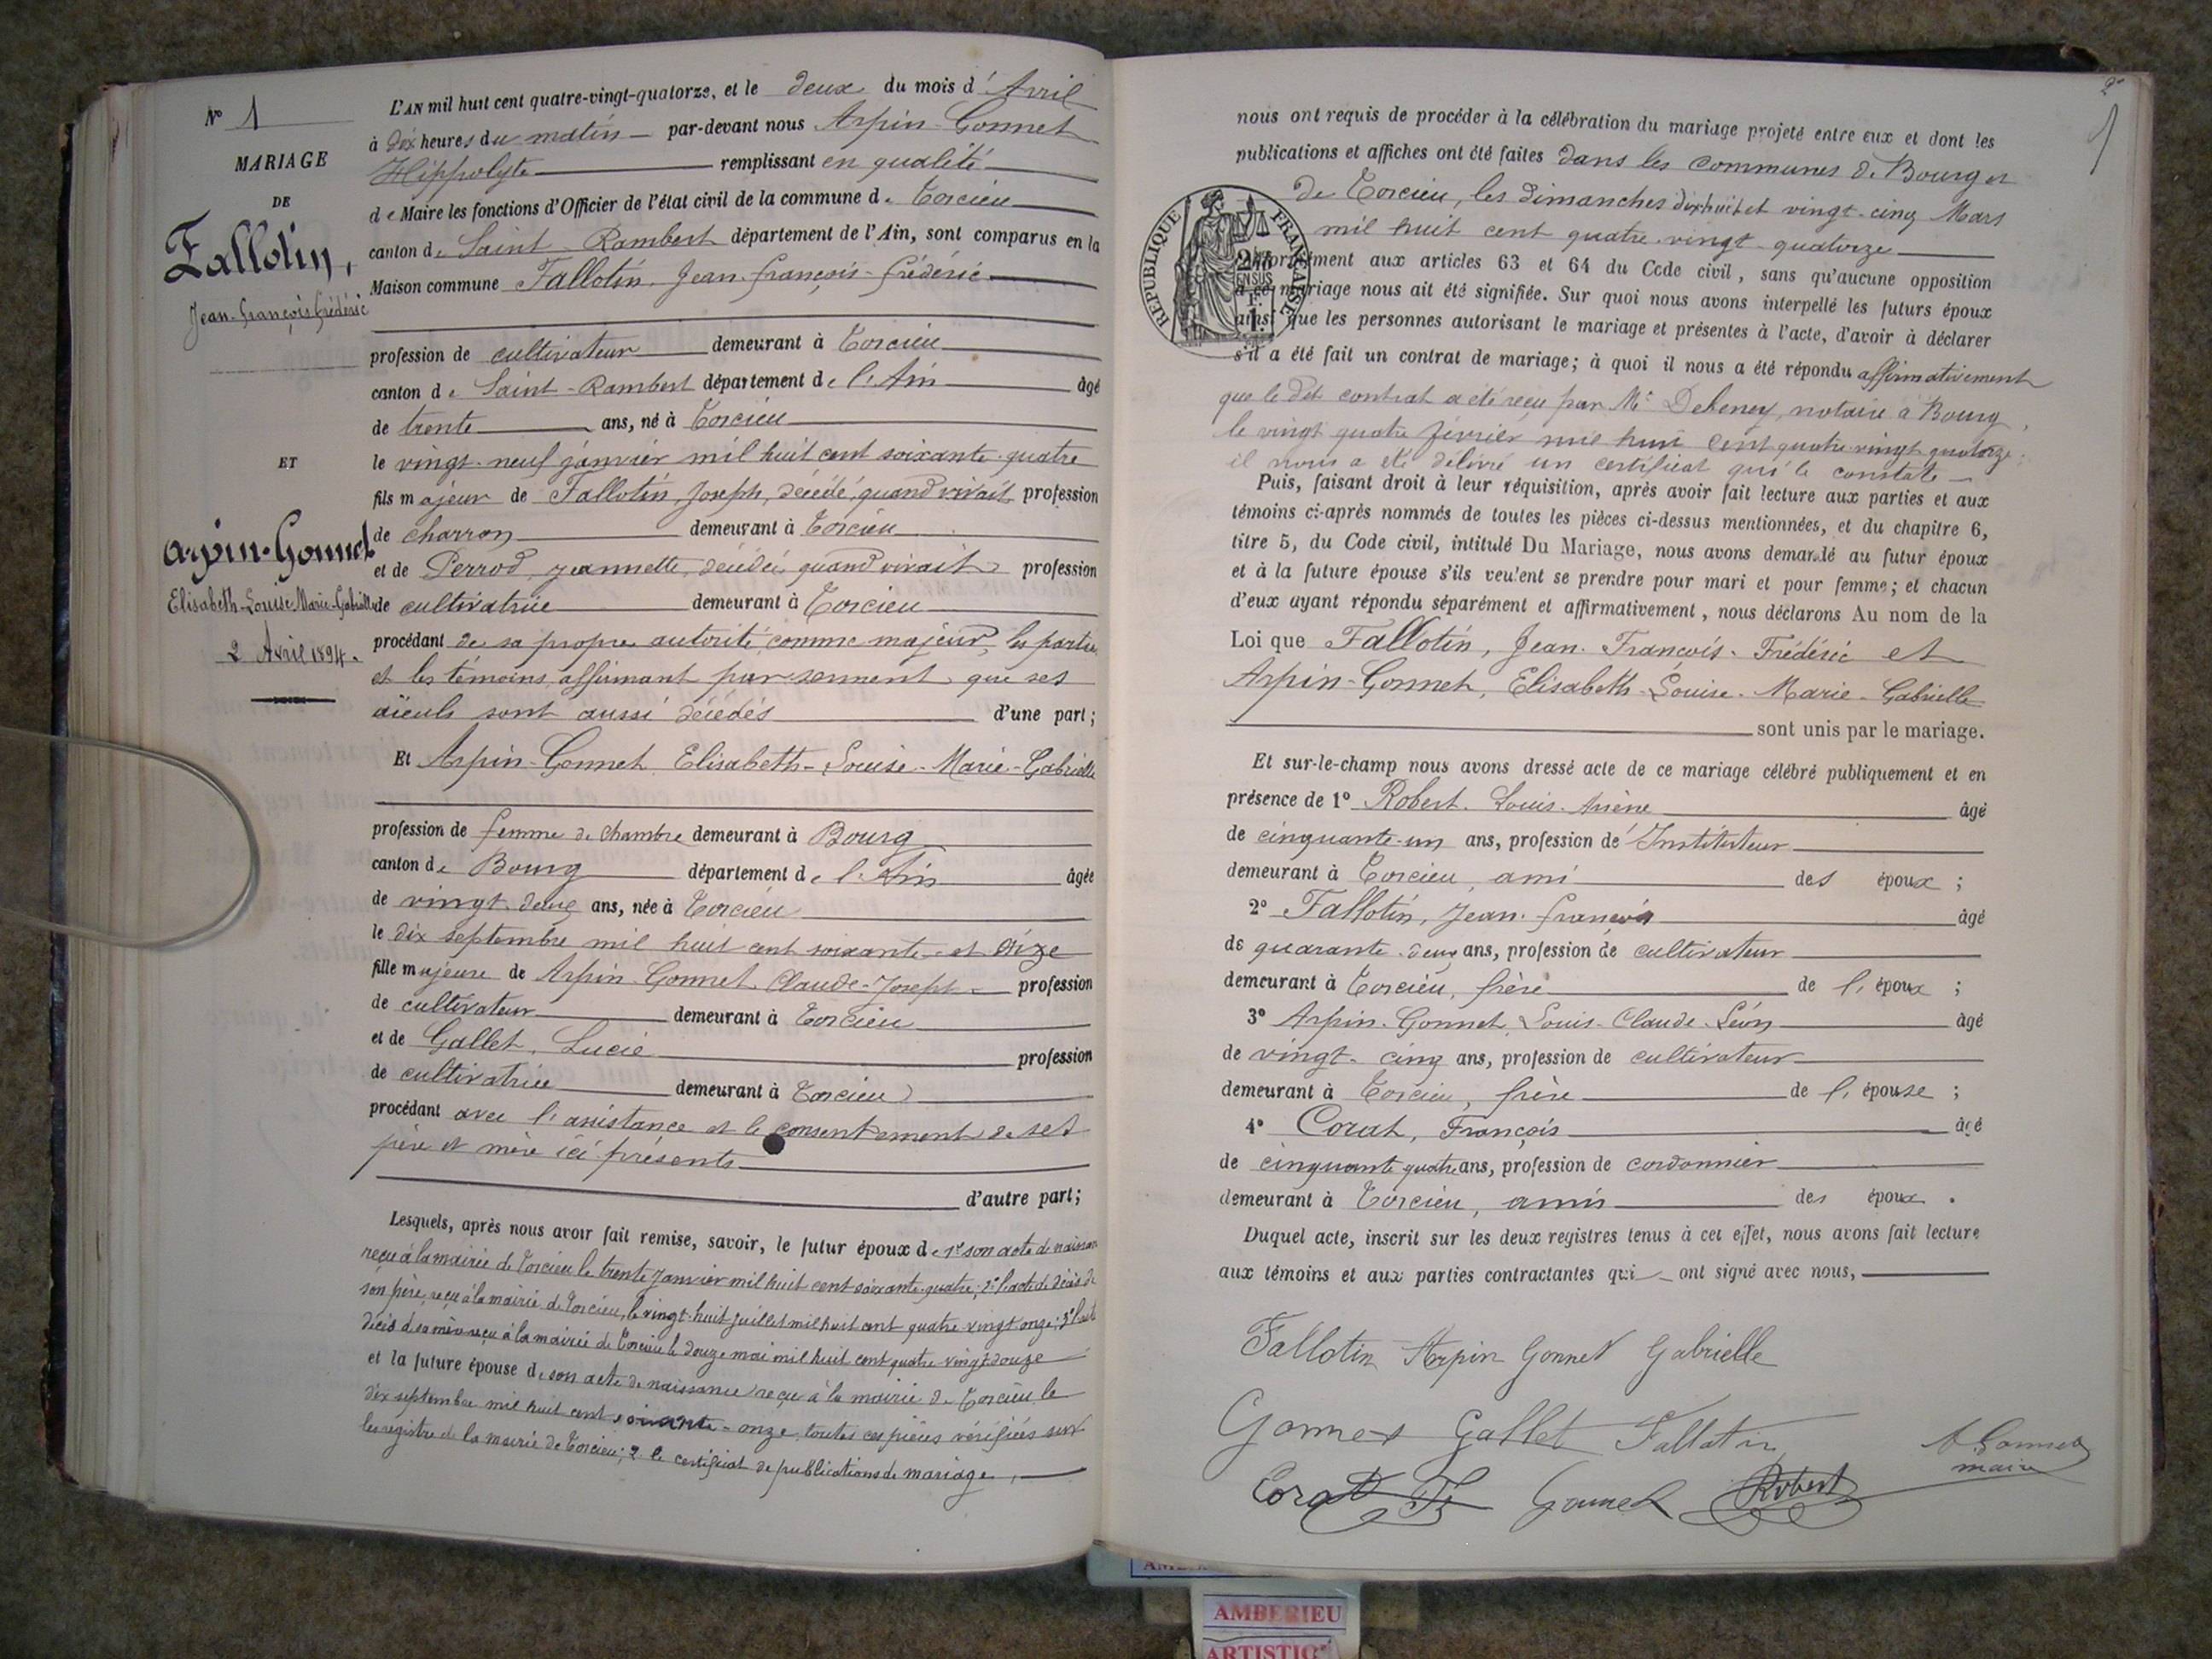 N° 1
MARIAGE
DE
Fallotin,
Jean-François Frédéric
ET
Arpin-Gonnet
Elisabeth-Louise Marie-Gabrielle
2 Avril 1894.
L'AN mil huit cent quatre-vingt-quatorze, et le deux du mois d'Avril
à dix heures du matin par-devant nous Arpin-Gonnet
Hippolyte remplissant en qualité
de Maire les fonctions d'Officier de l'état civil de la commune de Torcieu
canton de Saint-Rambert département de l'Ain, sont comparus en la
Maison commune Fallotin, Jean-François-Frédéric
profession de cultivateur demeurant à Torcieu
canton de Saint-Rambert département de l'Ain âgé
de trente ans, né à Torcieu
le vingt-neuf janvier mil huit cent soixante-quatre
fils majeur de Fallotin, Joseph, décédé, quand vivait profession
de charron demeurant à Torcieu
et de Perrod, Jeannette, décédée quand vivait profession
de cultivatrice demeurant à Torcieu
procédant de sa propre autorité comme majeur, les parties
et les témoins affirmant par serment que ses
aïeuls sont aussi décédés d'une part;
Et Arpin-Gonnet Elisabeth-Louise-Marie-Gabrielle
profession de femme de chambre demeurant à Bourg
canton de Bourg département de l'Ain âgée
de vingt-deux ans, née à Torcieu
le dix septembre mil huit cent soixante-et onze
fille majeure de Arpin-Gonnet, Claude-Joseph profession
de cultivateur demeurant à Torcieu
et de Gallet, Lucie profession
de cultivatrice demeurant à Torcieu
procédant avec l'assistance et le consentement de ses
père et mère ici présents
d'autre part;
Lesquels, après nous avoir fait remise, savoir, le futur époux de 1° son acte de naissance
reçu à la mairie de Torcieu le trente janvier mil huit cent soixante-quatre; 2° l'acte de décès de
son père, reçu à la mairie de Torcieu, le vingt-huit juillet mil huit cent quatre-vingt onze; 3° l'acte
décès de sa mère reçu à la mairie de Torcieu le douze mai mil huit cent quatre-vingt-douze
et la future épouse de son acte de naissance reçu à la mairie de Torcieu le
dix septembre mil huit cent soixante-onze, toutes ces pièces vérifiées sur
les registre de la mairie de Torcieu; 2° le certificat de publications de mariage,
2
nous ont requis de procéder à la célébration du mariage projeté entre eux et dont les
publications et affiches ont été faites dans les communes de Bourg et
de Torcieu, les dimanches dix huit et vingt-cinq Mars
mil huit cent quatre-vingt-quatorze
RÉPUBLIQUE FRANÇAISE
conformément aux articles 63 et 64 du Code civil, sans qu'aucune opposition
à ce mariage nous ait été signifiée. Sur quoi nous avons interpellé les futurs époux
ainsi que les personnes autorisant le mariage et présentes à l'acte, d'avoir à déclarer
s'il a été fait un contrat de mariage; à quoi il nous a été répondu affirmativement
que le dit contrat a été reçu par Me Debeney, notaire à Bourg,
le vingt quatre février mil huit cent quatre-vingt quatorze;
il nous a été délivré un certificat qui le constate
Puis, faisant droit à leur réquisition, après avoir fait lecture aux parties et aux
témoins ci-après nommés de toutes les pièces ci-dessus mentionnées, et du chapitre 6,
titre 5, du Code civil, intitulé Du Mariage, nous avons demandé au futur époux
et à la future épouse s'ils veulent se prendre pour mari et pour femme; et chacun
d'eux ayant répondu séparément et affirmativement, nous déclarons Au nom de la
Loi que Fallotin, Jean-François-Frédéric et
Arpin-Gonnet, Elisabeth-Louise-Marie-Gabrielle
sont unis par le mariage.
Et sur-le-champ nous avons dressé acte de ce mariage célébré publiquement et en
présence de 1° Robert, Louis-Arsène âgé
de cinquante-un ans, profession d'Instituteur
demeurant à Torcieu, ami des époux;
2° Fallotin, Jean-François âgé
de quarante-deux ans, profession de cultivateur
demeurant à Torcieu, frère de l'époux;
3° Arpin-Gonnet, Louis-Claude-Léon âgé
de vingt-cinq ans, profession de cultivateur
demeurant à Torcieu, frère de l'épouse;
4° Corat, François âgé
de cinquante quatre ans, profession de cordonnier
demeurant à Torcieu, amis des époux.
Duquel acte, inscrit sur les deux registres tenus à cet effet, nous avons fait lecture
aux témoins et aux parties contractantes qui ont signé avec nous,
Fallotin Arpin Gonnet Gabrielle
Gonnet Gallet Fallotin A. Gonnet
maire
Corat Fs Gonnet Robert
AMBERIEU
ARTISTIC